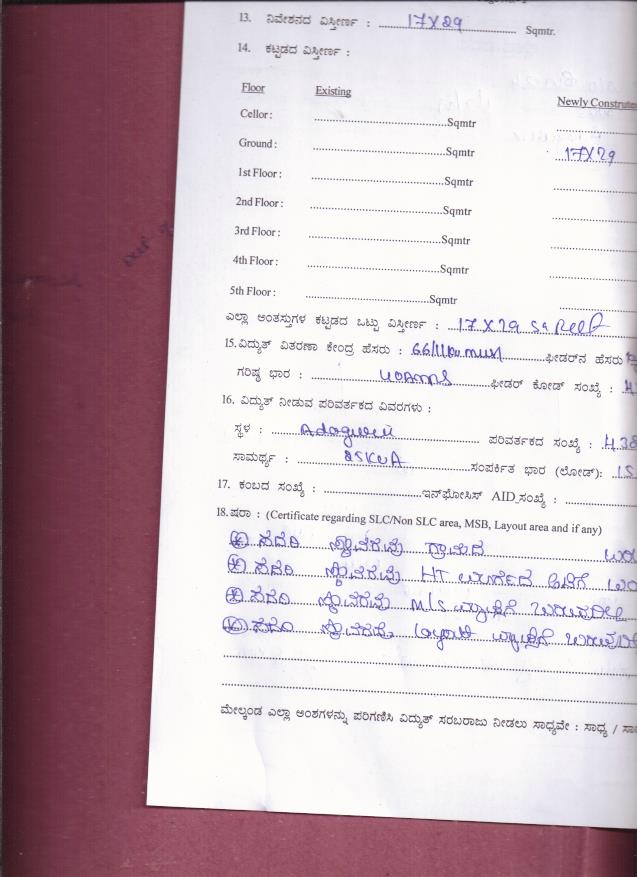 13. ನಿವೇಶನದ ವಿಸ್ತೀರ್ಣ : 17X29 Sqmtr.
14. ಕಟ್ಟಡದ ವಿಸ್ತೀರ್ಣ :
Floor Existing Newly Construte
Cellor : Sqmtr
Ground : Sqmtr 17X29
1st Floor : Sqmtr
2nd Floor : Sqmtr
3rd Floor : Sqmtr
4th Floor : Sqmtr
5th Floor : Sqmtr
ಎಲ್ಲಾ ಅಂತಸ್ತುಗಳ ಕಟ್ಟಡದ ಒಟ್ಟು ವಿಸ್ತೀರ್ಣ : 17 X 29
15. ವಿದ್ಯುತ್ ವಿತರಣಾ ಕೇಂದ್ರ ಹೆಸರು : ಫೀಡರ್‌ನ ಹೆಸರು
ಗರಿಷ್ಠ ಭಾರ : ಫೀಡರ್ ಕೋಡ್ ಸಂಖ್ಯೆ :
16. ವಿದ್ಯುತ್ ನೀಡುವ ಪರಿವರ್ತಕದ ವಿವರಗಳು :
ಸ್ಥಳ : ಪರಿವರ್ತಕದ ಸಂಖ್ಯೆ : 438
ಸಾಮರ್ಥ್ಯ : 25KVA ಸಂಪರ್ಕಿತ ಭಾರ (ಲೋಡ್):
17. ಕಂಬದ ಸಂಖ್ಯೆ : ಇನ್‌ಫೋಸಿಸ್ AID ಸಂಖ್ಯೆ :
18. ಷರಾ : (Certificate regarding SLC/Non SLC area, MSB, Layout area and if any)
ಸದರಿ ಸ್ಥಾವರವು ಗ್ರಾಮದ
ಸದರಿ ಸ್ಥಾವರವು HT
ಸದರಿ ಸ್ಥಾವರವು ವ್ಯಾಪ್ತಿಗೆ ಬರುವುದಿಲ್ಲ
ಸದರಿ ಸ್ಥಾವರವು layout ವ್ಯಾಪ್ತಿಗೆ
ಮೇಲ್ಕಂಡ ಎಲ್ಲಾ ಅಂಶಗಳನ್ನು ಪರಿಗಣಿಸಿ ವಿದ್ಯುತ್ ಸರಬರಾಜು ನೀಡಲು ಸಾಧ್ಯವೇ : ಸಾಧ್ಯ /